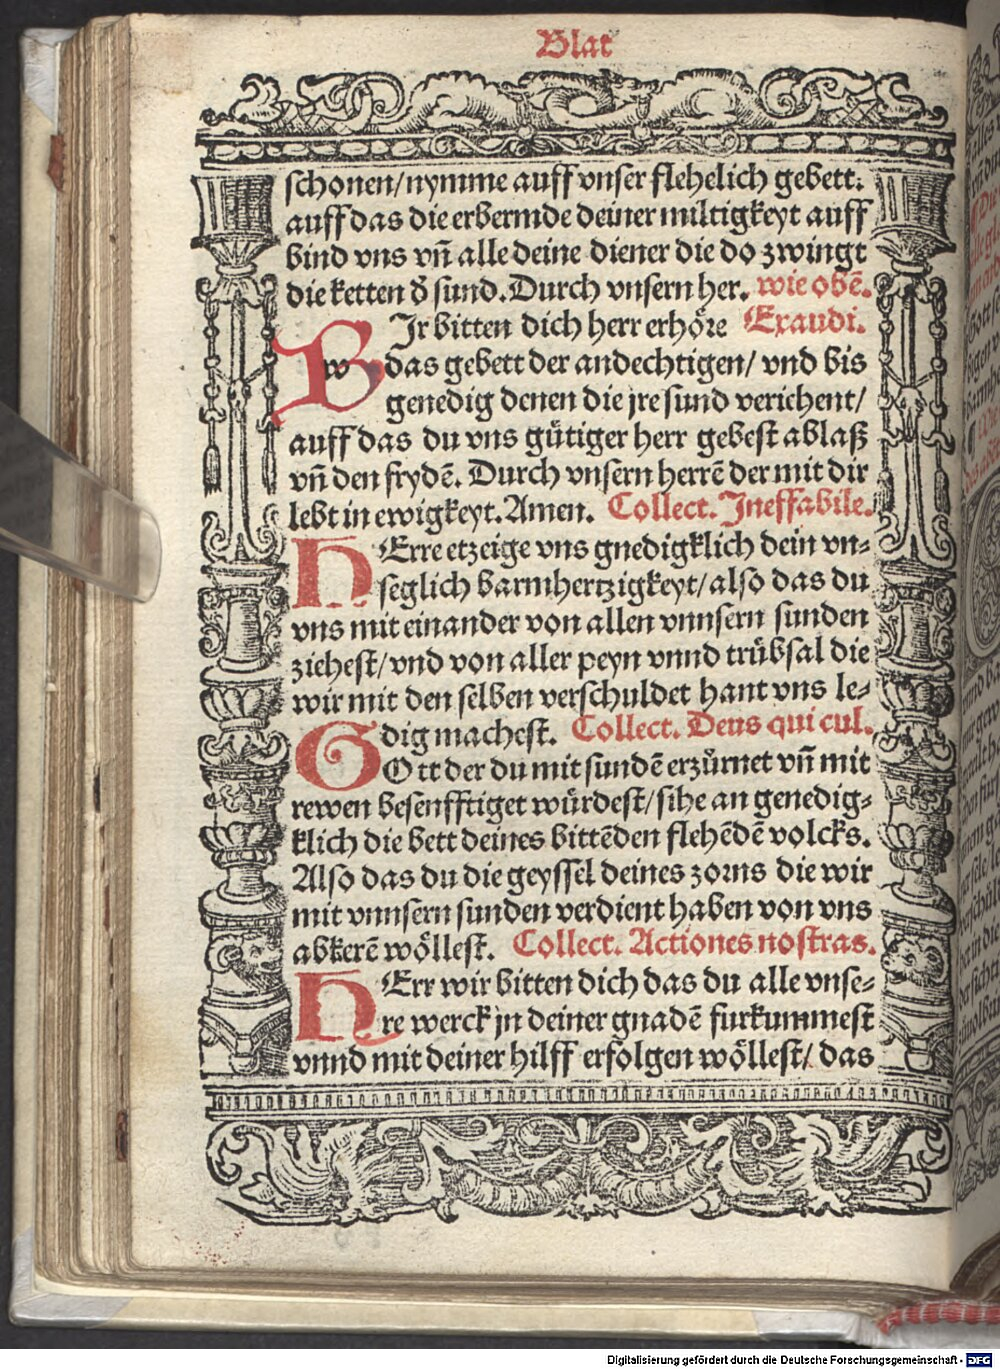 Blat
schonen/nymme auff vnser flehelich gebett:
auff das die erbermde deiner miltigkeyt auff
bind vns vñ alle deine diener die do zwingt
die ketten d̕ sund. Durch vnsern her. wie obẽ.
BIr bitten dich herr erhöre Exaudi.
w das gebett der andechtigen/ vnd bis
genedig denen die jre sund verichent/
auff das du vns gütiger herr gebest ablaß
vñ den frydẽ. Durch vnsern herrẽ der mit dir
lebt in ewigkeyt. Amen. Collect. Ineffabile.
HErre etzeige vns gnedigklich dein vn⸗
seglich barmhertzigkeyt/ also das du
vns mit einander von allen vnnsern sunden
ziehest/ vnd von aller peyn vnnd trübsal die
wir mit den selben verschuldet hant vns le⸗
dig machest. Collect. Deus qui cul.
GOtt der du mit sundẽ erzürnet vñ mit
rewen besenfftiget würdest/ sihe an genedig⸗
klich die bett deines bittẽden flehẽdẽ volcks.
Also das du die geyssel deines zorns die wir
mit vnnsern sunden verdient haben von vns
abkerẽ wöllest. Collect. Actiones nostras.
HErr wir bitten dich das du alle vnse⸗
re werck jn deiner gnadẽ furkummest
vnnd mit deiner hilff erfolgen wöllest/ das
Digitalisierung gefördert durch die Deutsche Forschungsgemeinschaft - DFG